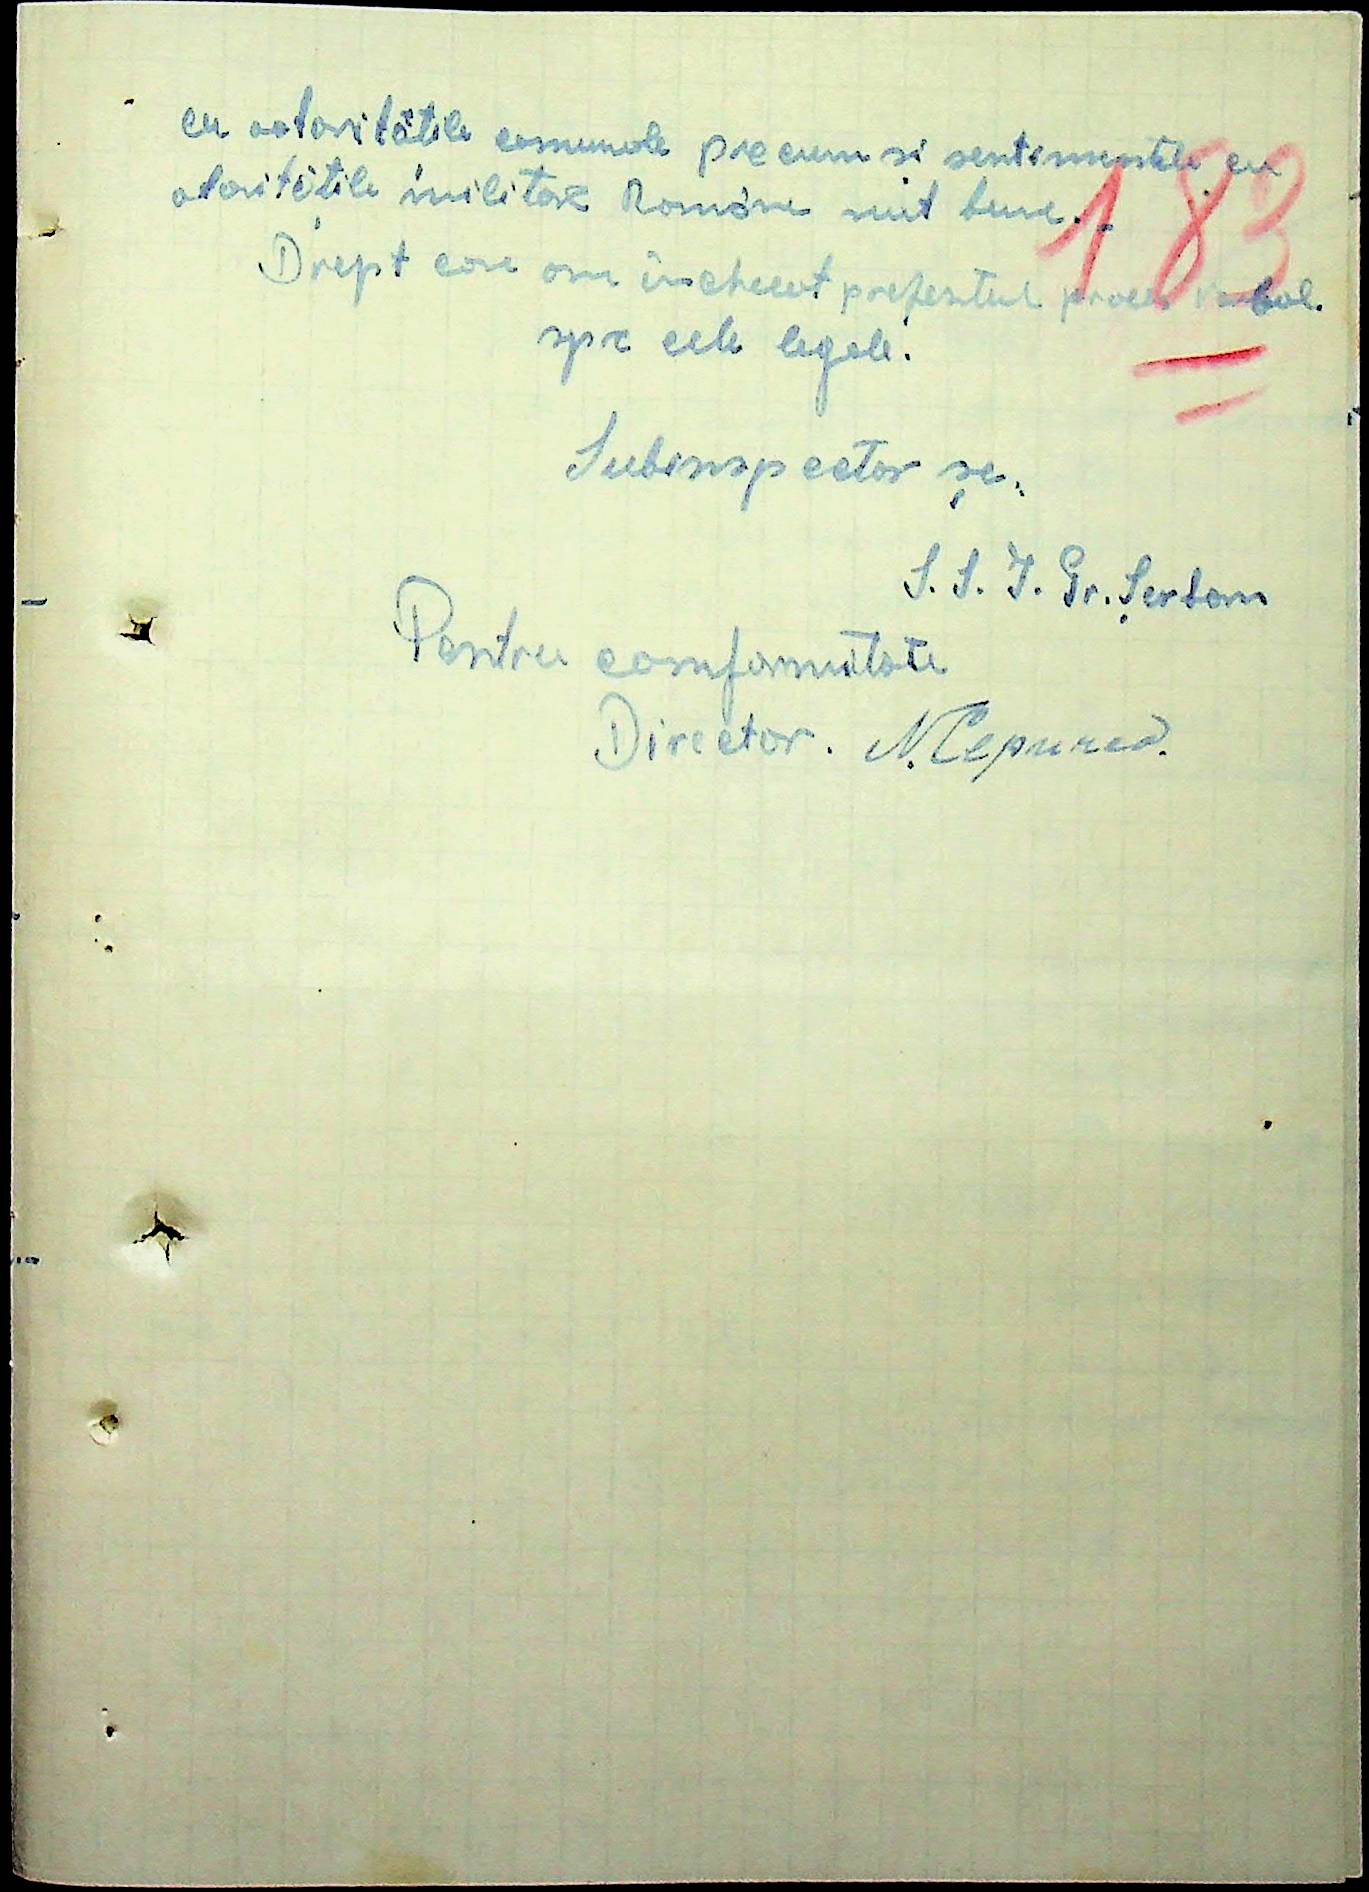 cu aotoritățile comunale precum si sentimentele cu
183
atoritățile militare Române sînt bune.
Drept care am incheeat prezentul proces verbal.
spre cele legale.
Subinspector șc.
S. S. I. Gr. Șerban
Pentru comformitate
Director. N.